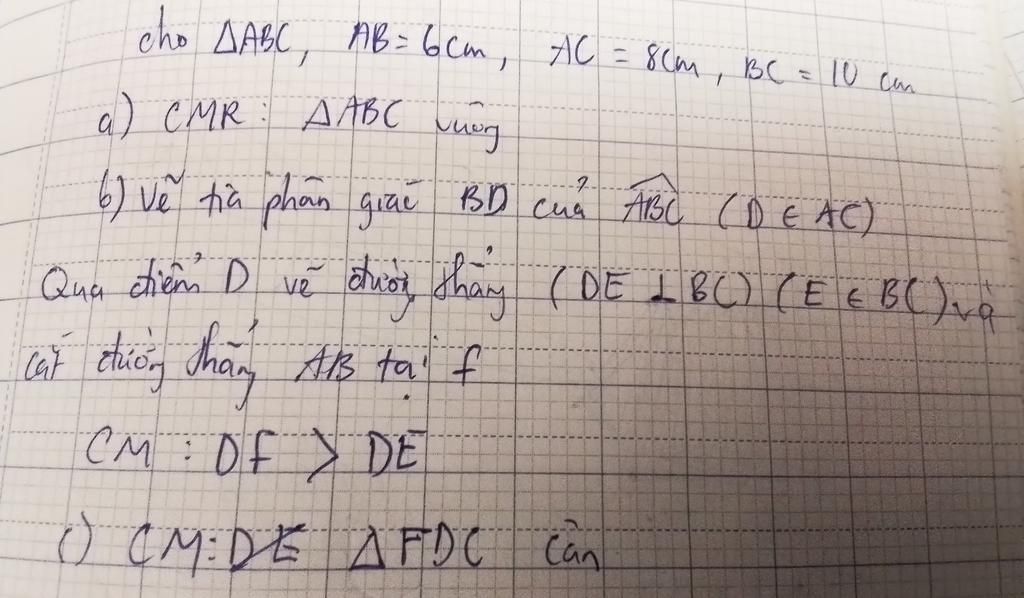 cho ΔABC, AB = 6cm, AC = 8cm, BC = 10 cm
a) CMR: ΔABC vuông
b) Vẽ tia phân giác BD của \widehat{ABC} (D ∈ AC)
Qua điểm D vẽ đường thẳng (DE ⊥ BC) (E ∈ BC) và
cắt đường thẳng AB tại f
CM : DF > DE
c) CM: ΔFDC cân